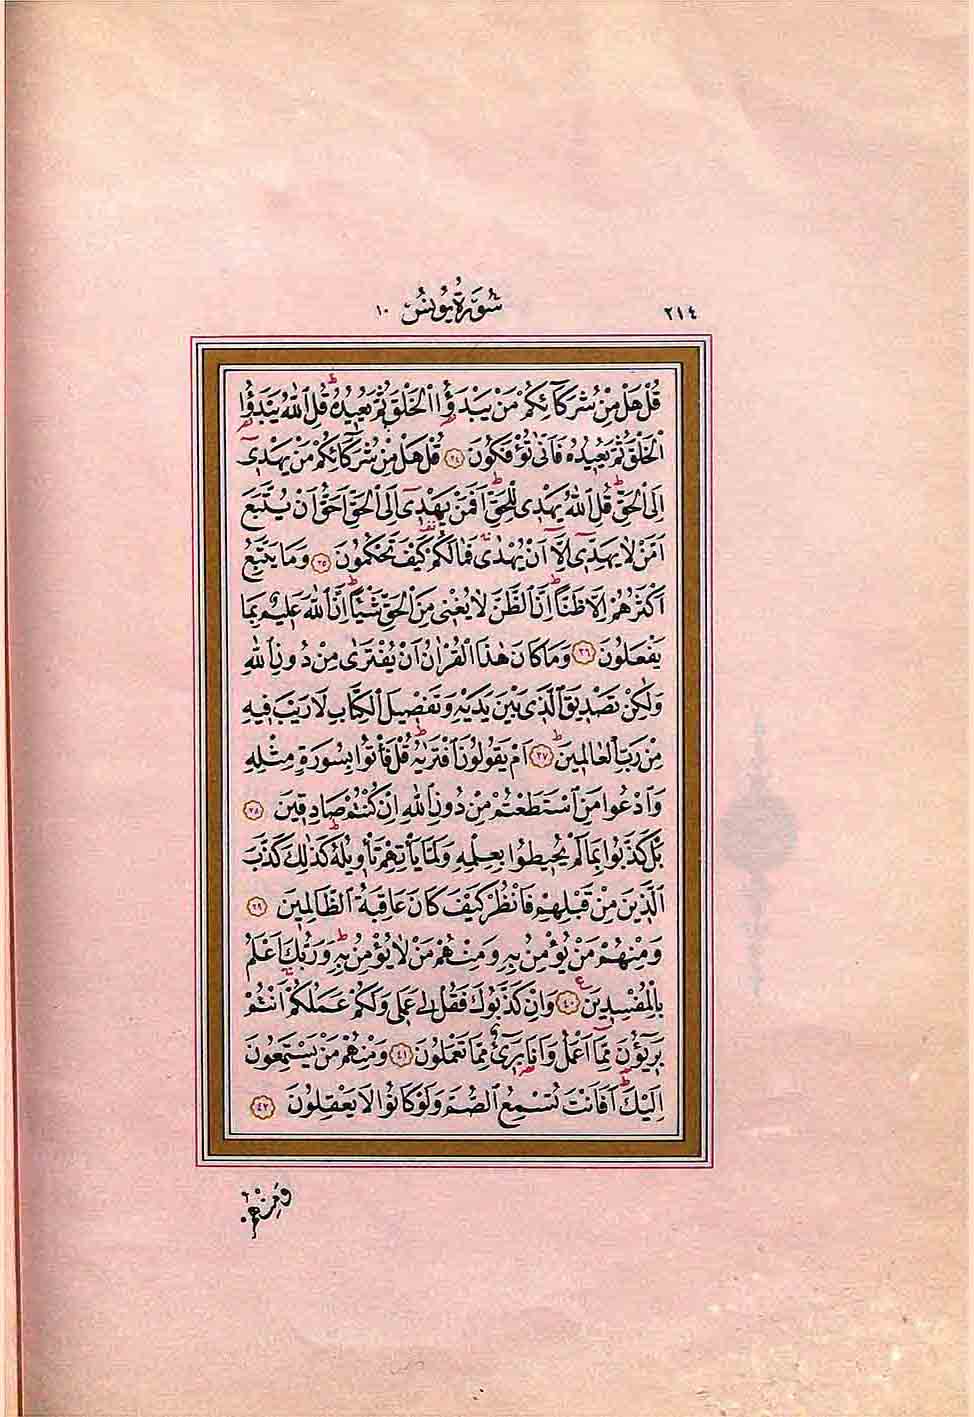 ٢١٤
سُورَةُ يُونُسَ ١٠
قُلْ هَلْ مِنْ شُرَكَٓائِكُمْ مَنْ يَبْدَؤُا الْخَلْقَ ثُمَّ يُعِيدُهُ قُلِ اللّٰهُ يَبْدَؤُا
الْخَلْقَ ثُمَّ يُعِيدُهُ فَاَنّٰى تُؤْفَكُونَ ٣٤ قُلْ هَلْ مِنْ شُرَكَٓائِكُمْ مَنْ يَهْدِٓي
اِلَى الْحَقِّ قُلِ اللّٰهُ يَهْدِي لِلْحَقِّ اَفَمَنْ يَهْدِٓي اِلَى الْحَقِّ اَحَقُّ اَنْ يُتَّبَعَ
اَمَّنْ لَا يَهِدِّٓي اِلَّٓا اَنْ يُهْدٰى فَمَا لَكُمْ كَيْفَ تَحْكُمُونَ ٣٥ وَمَا يَتَّبِعُ
اَكْثَرُهُمْ اِلَّا ظَنًّا اِنَّ الظَّنَّ لَا يُغْنِي مِنَ الْحَقِّ شَيْـًٔا اِنَّ اللّٰهَ عَلِيمٌ بِمَا
يَفْعَلُونَ ٣٦ وَمَا كَانَ هٰذَا الْقُرْاٰنُ اَنْ يُفْتَرٰى مِنْ دُونِ اللّٰهِ
وَلٰكِنْ تَصْدِيقَ الَّذِي بَيْنَ يَدَيْهِ وَتَفْصِيلَ الْكِتَابِ لَا رَيْبَ فِيهِ
مِنْ رَبِّ الْعَالَمِينَ ٣٧ اَمْ يَقُولُونَ افْتَرٰيهُ قُلْ فَأْتُوا بِسُورَةٍ مِثْلِهِ
وَادْعُوا مَنِ اسْتَطَعْتُمْ مِنْ دُونِ اللّٰهِ اِنْ كُنْتُمْ صَادِقِينَ ٣٨
بَلْ كَذَّبُوا بِمَا لَمْ يُحِيطُوا بِعِلْمِهِ وَلَمَّا يَأْتِهِمْ تَأْوِيلُهُ كَذٰلِكَ كَذَّبَ
الَّذِينَ مِنْ قَبْلِهِمْ فَانْظُرْ كَيْفَ كَانَ عَاقِبَةُ الظَّالِمِينَ ٣٩
وَمِنْهُمْ مَنْ يُؤْمِنُ بِهِ وَمِنْهُمْ مَنْ لَا يُؤْمِنُ بِهِ وَرَبُّكَ اَعْلَمُ
بِالْمُفْسِدِينَ ٤٠ وَاِنْ كَذَّبُوكَ فَقُلْ لِي عَمَلِي وَلَكُمْ عَمَلُكُمْ اَنْتُمْ
بَرِٓيؤُنَ مِمَّٓا اَعْمَلُ وَاَنَا بَرِٓيءٌ مِمَّا تَعْمَلُونَ ٤١ وَمِنْهُمْ مَنْ يَسْتَمِعُونَ
اِلَيْكَ اَفَاَنْتَ تُسْمِعُ الصُّمَّ وَلَوْ كَانُوا لَا يَعْقِلُونَ ٤٢
وَمِنْهُمْ